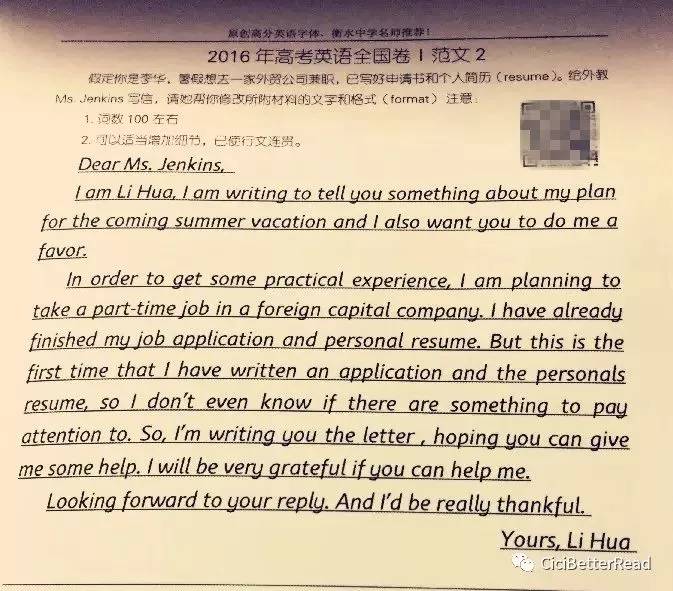 原创高分英语字体，衡水中学名师推荐！
2016 年高考英语全国卷 I 范文 2
假定你是李华，暑假想去一家外贸公司兼职，已写好申请书和个人简历（resume）。给外教
Ms. Jenkins 写信，请她帮你修改所附材料的文字和格式（format）注意：
1. 词数 100 左右
2. 可以适当增加细节，已使行文连贯。
Dear Ms. Jenkins,
I am Li Hua, I am writing to tell you something about my plan
for the coming summer vacation and I also want you to do me a
favor.
In order to get some practical experience, I am planning to
take a part-time job in a foreign capital company. I have already
finished my job application and personal resume. But this is the
first time that I have written an application and the personals
resume, so I don't even know if there are something to pay
attention to. So, I'm writing you the letter , hoping you can give
me some help. I will be very grateful if you can help me.
Looking forward to your reply. And I'd be really thankful.
Yours, Li Hua
CiciBetterRead